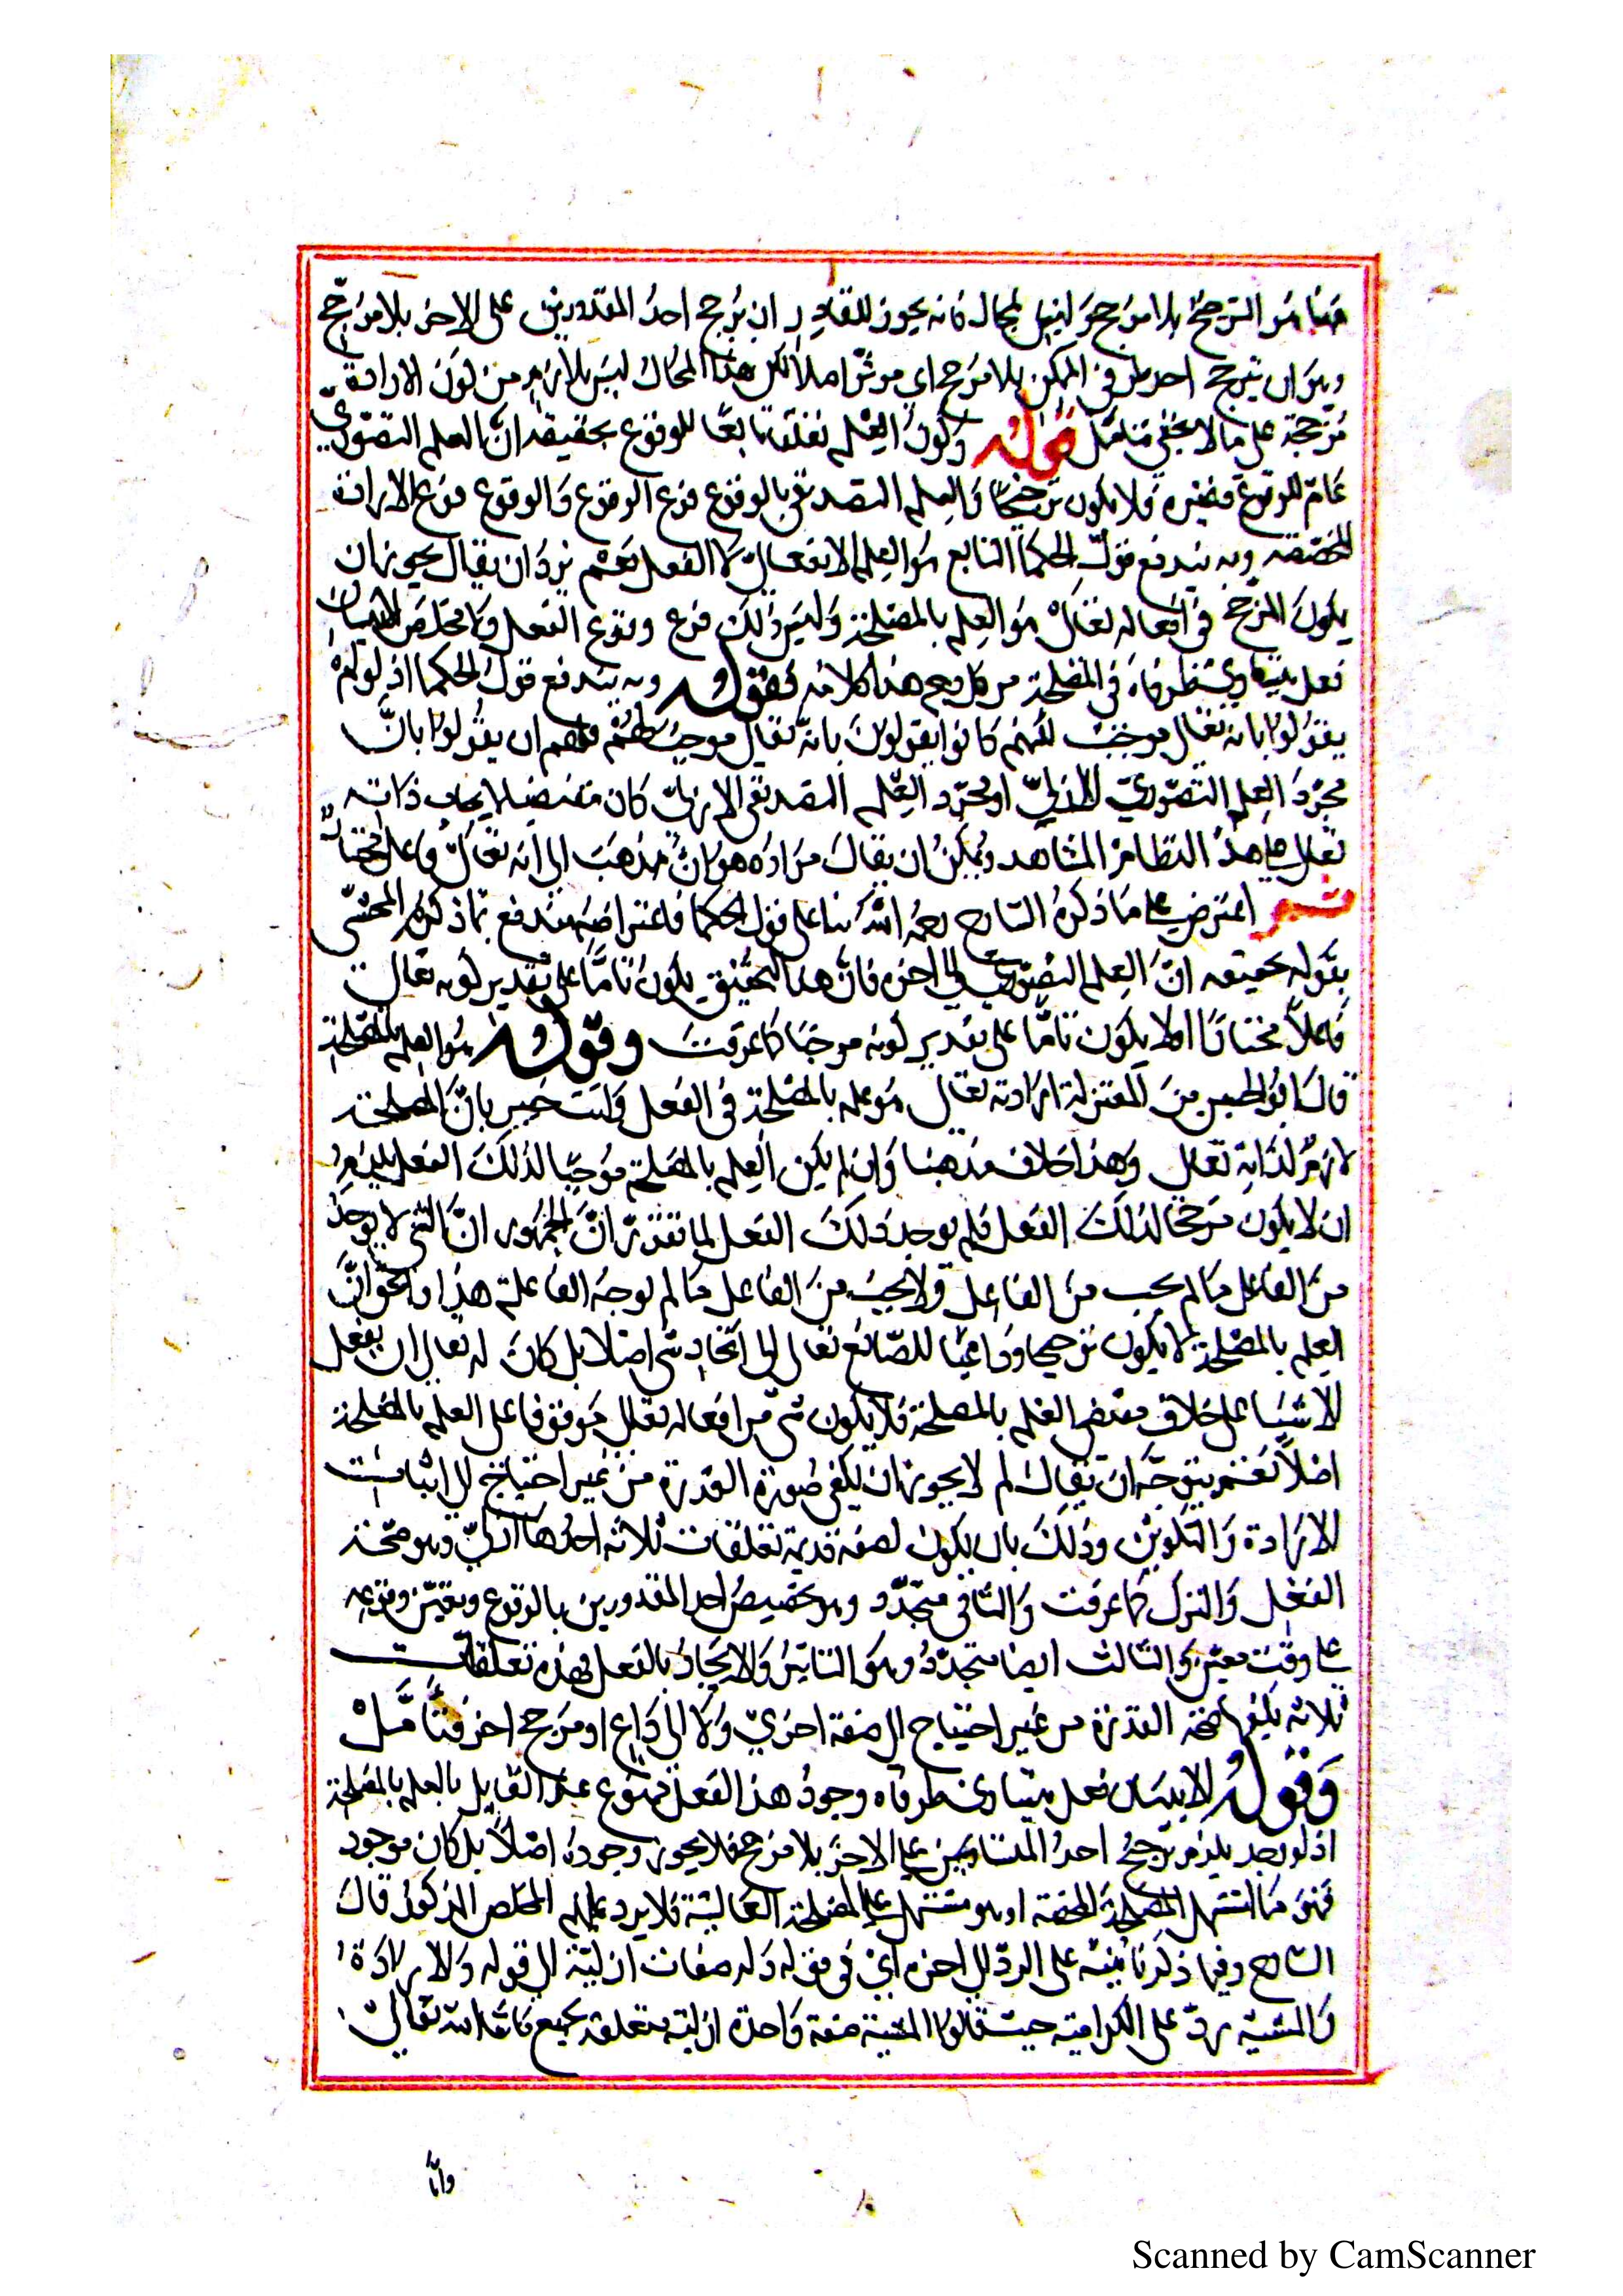 هنا هو الترجيح بلا مرجح وليس بمحال فانه يجوز للقادر ان يرجح احد المقدورين على الاخر بلا مرجح
وبين ان يترجح احد طرفي الممكن بلا مرجح اي موثر اصلا لكن هذا المحال ليس بلازم من كون الارادة
مرجحة على ما لا يخفى فتامل قوله وكون العلم تعلقا تابعا للوقوع تحقيقه ان العلم التصوري
عام للوقوع وغيره فلا يكون ترجيحا والعلم التصديقي بالوقوع فرع الوقوع والوقوع فرع الارادة
المخصصة وبه يندفع قول الحكما التابع هو العلم الانفعالي لا الفعلي نعم يرد ان يقال يجوز ان
يكون المرجح في افعاله تعالى هو العلم بالمصلحة وليس ذلك فرع وقوع الفعل ولا مخلص الا ببيان
فعل يتساوى طرفاه في المصلحة من كل وجه هذا كلامه فقوله وبه يندفع قول الحكما اذ لو لم
يقولوا بانه تعالى موجب لكنهم كانوا يقولون بانه تعالى موجب فلهم ان يقولوا بان
مجرد العلم التصوري الازلي او مجرد العلم التصديقي الازلي كان مقتضيا لايجاب ذاته
تعالى هذا النظام المشاهد ويمكن ان يقال مراده هو ان مذهب الى انه تعالى فاعل مختار
ثم اعترض على ما ذكره الشارح رحمه الله بناء على قول الحكما فاعتراضه مندفع بما ذكره المحشي
بقوله تحقيقه ان العلم التصوري الى اخره فان هذا التحقيق يكون تاما على تقدير كونه تعالى
فاعلا مختارا او لا يكون تاما على تقدير كونه موجبا كما عرفت وقوله هو العلم بالمصلحة
قال ابو الحسين من المعتزلة ارادته تعالى هو علمه بالمصلحة في الفعل وانت خبير بان المصلحة
لازم لذاته تعالى وهذا خلاف مذهبنا وان لم يكن العلم بالمصلحة موجبا لذلك الفعل يلزم
ان لا يكون مرجحا لذلك الفعل فلم يوجد ذلك الفعل لما تقرر ان الجمهور ان الشي لا يوجد
من الفاعل ما لم يجب من الفاعل ولا يجب من الفاعل ما لم يوجد الفاعلة هذا والحق ان
العلم بالمصلحة لا يكون ترجيحا وداعيا للصانع تعالى الى اتخاذ شي اصلا بل كان له تعالى ان يفعل
الاشيا على خلاف مقتضى العلم بالمصلحة فلا يكون شي من افعاله تعالى موقوفا على العلم بالمصلحة
اصلا نعم يتوجه ان يقال لم لا يجوز ان يكفى صورة القدرة من غير احتياج الى اثبات
الارادة والتكوين وذلك بان يكون لصفة قديمة تعلقات ثلاثة احدها ازلي وهو صحة
الفعل والترك كما عرفت والثاني متجدد وهو تخصيص احد المقدورين بالوقوع وتعين وقوعه
على وقت معين والثالث ايضا متجدد وهو التاثير والايجاد بالفعل فهذه تعلقات
ثلاثة يكفيها صفة القدرة من غير احتياج الى صفة اخرى ولا الى داع او مرجح اخر فتامل
وقوله الا ببيان فعل يتساوى طرفاه وجود هذا الفعل ممنوع عند القايل بالعلم بالمصلحة
اذ لو وجد يلزم ترجيح احد المتساويين على الاخر بلا مرجح فلا يجوز وجوده اصلا بل كان موجود
فهو ما اشتمل المصلحة المحضة او هو مشتمل على المصلحة الغالبة فلا يرد عليهم المخلص المذكور قال
الشارح وفيما ذكرنا تنبيه على الرد الى اخره اي في قوله وله صفات ازلية الى قوله والارادة
والمشية رد على الكرامية حيث قالوا المشية صفة واحدة ازلية متعلقة بجميع ما شاء الله تعالى
واما
Scanned by CamScanner